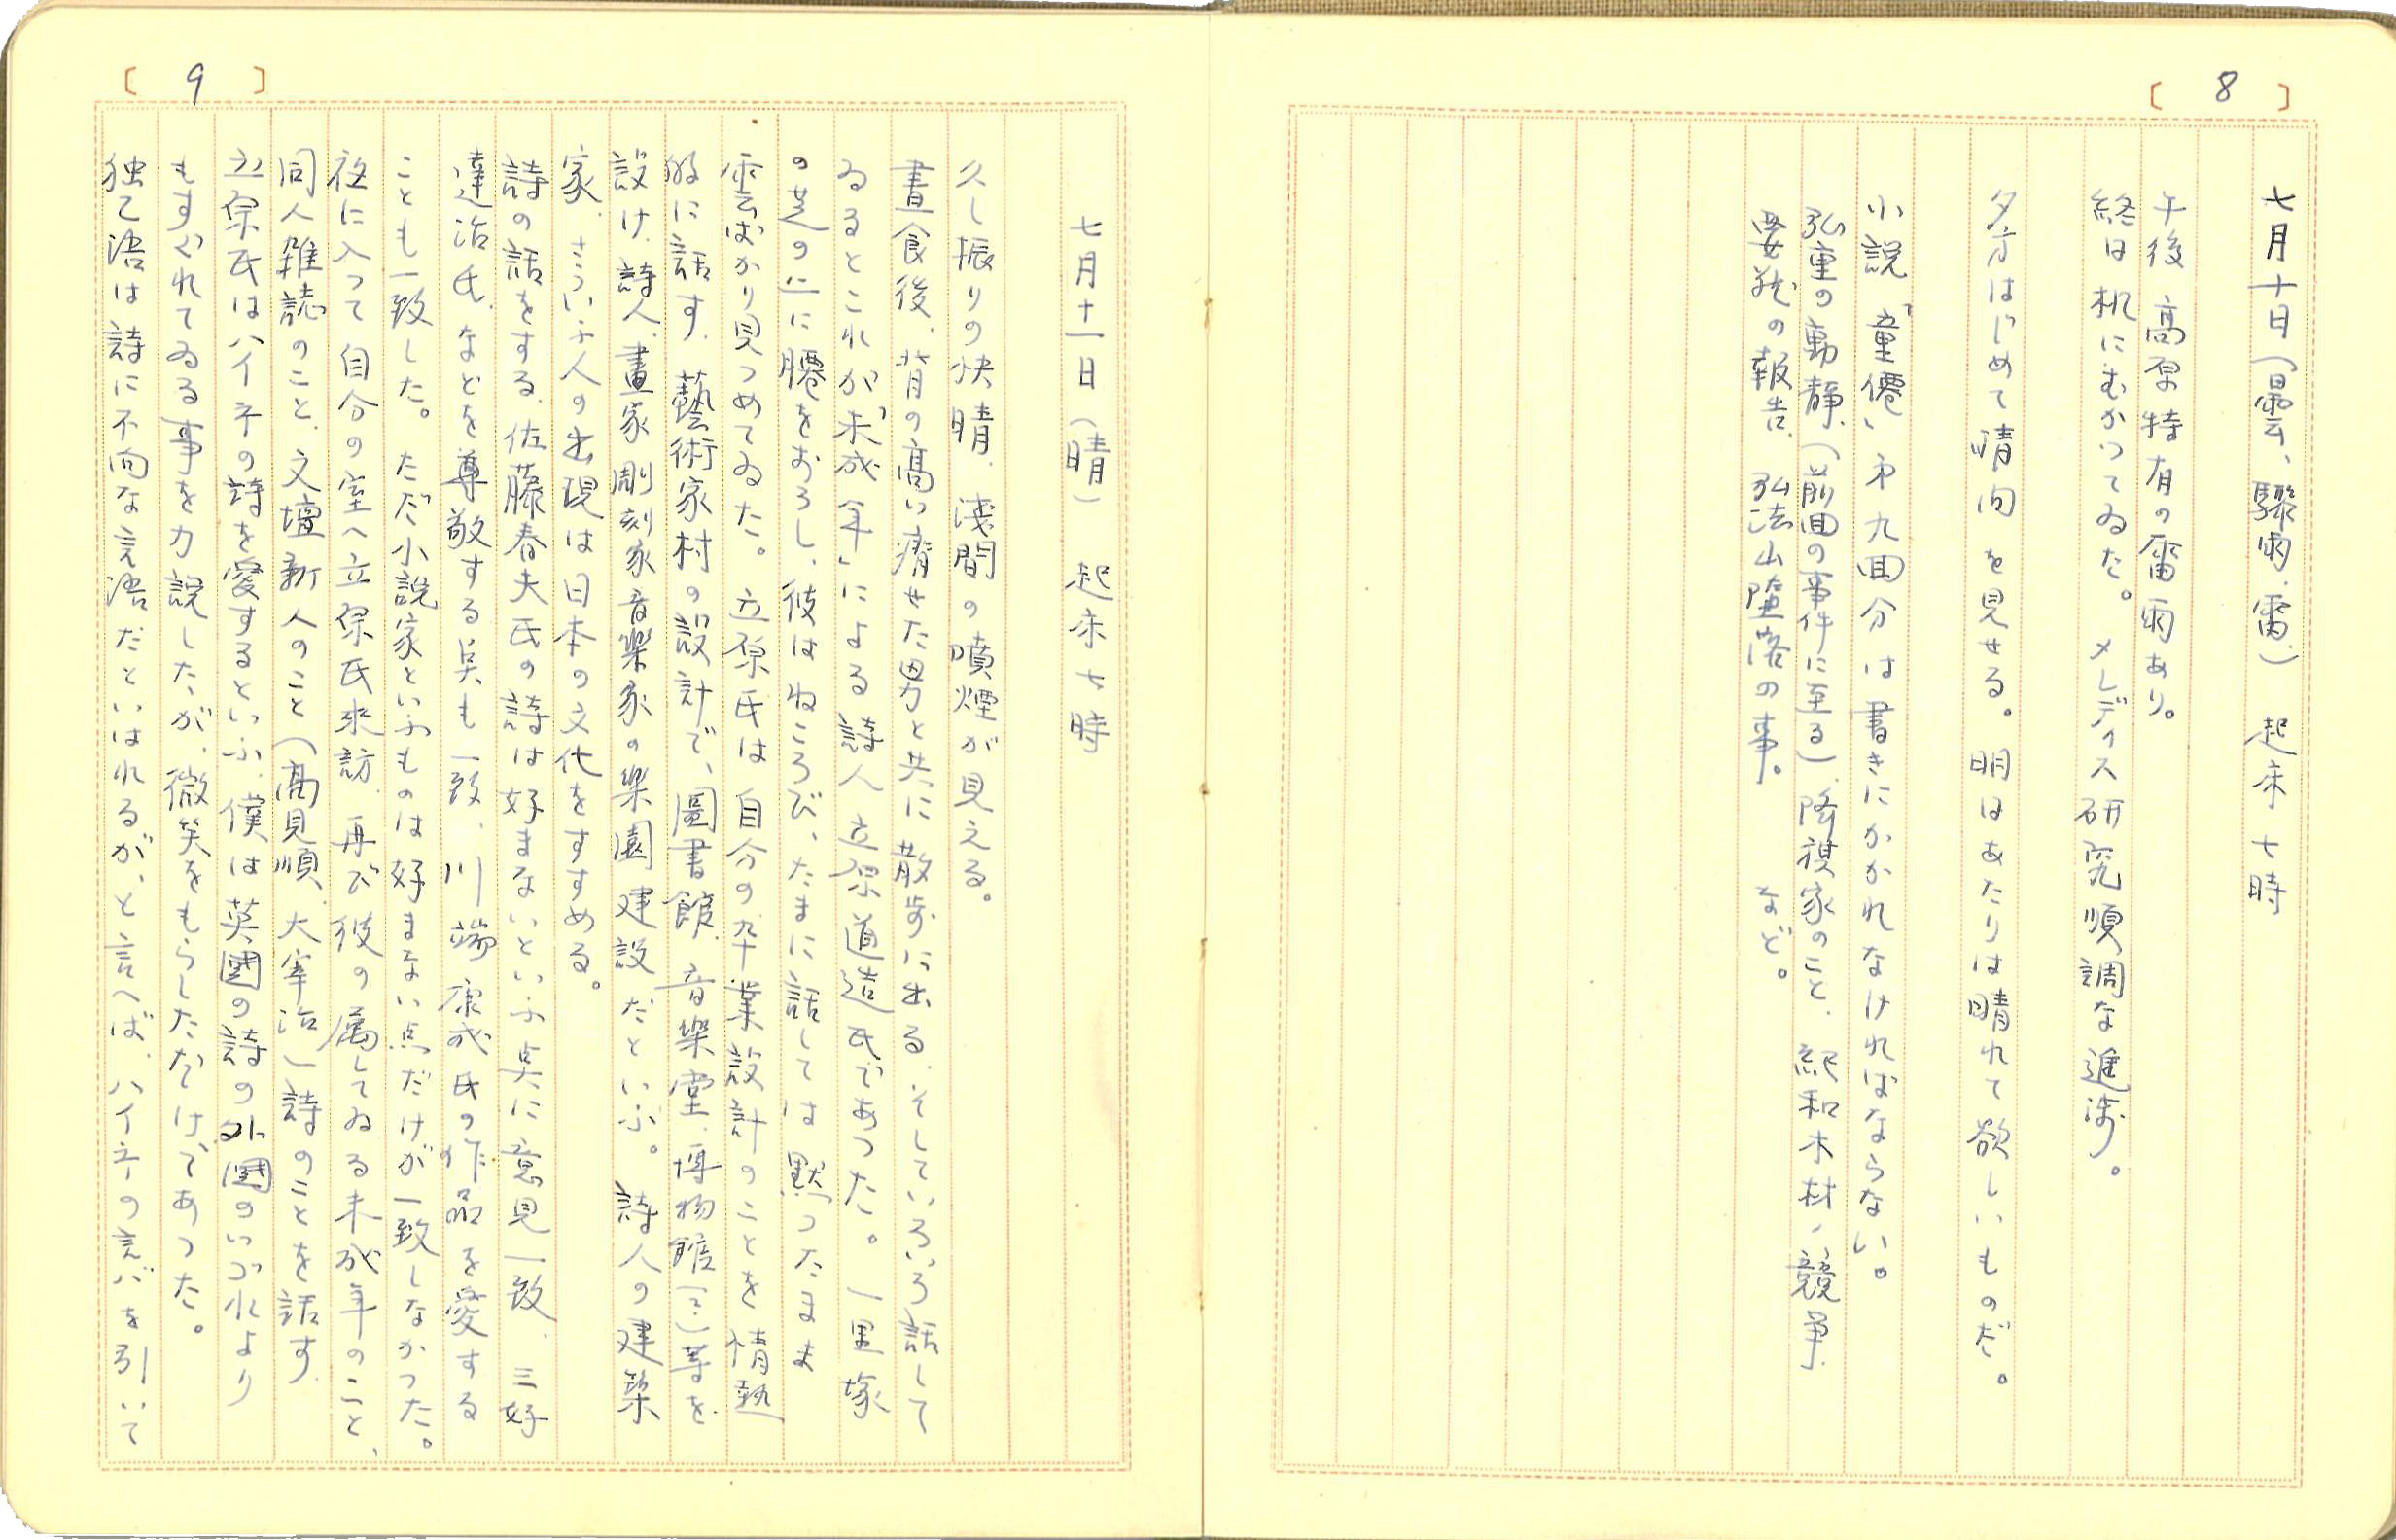 8
七月十日(曇、驟雨、雷) 起床七時
午後 高原特有の雷雨あり。
終日机にむかつてゐた。 メレディス研究順調な進渉。
夕方はじめて晴間を見せる。明日あたりは晴れて欲しいものだ。
小説「童僊」第九回分は書きにかかれなければならない。
弘重の動静、(前回の事件に至る)、降旗家のこと、紀和木材ノ競争、
要蔵の報告、弘法山墜落の事。 など。
9
七月十一日(晴) 起床七時
久し振りの快晴、浅間の噴煙が見える。
晝食後、背の高い瘠せた男と共に散歩に出る、そしていろいろ話して
ゐるとこれが「未成年」による詩人立原道造氏であつた。一里塚
の芝の上に腰をおろし、彼はねころび、たまに話しては黙つたまま
雲ばかり見つめてゐた。立原氏は自分の卒業設計のことを情熱
的に話す、藝術家村の設計で、圖書館、音樂堂、博物館(?)等を
設け、詩人、畫家、彫刻家、音樂家の樂園建設だといふ。詩人の建築
家、さういふ人の出現は日本の文化をすすめる。
詩の話をする、佐藤春夫氏の詩は好まないといふ点に意見一致、三好
達治氏などを尊敬する点も一致、川端康成氏の作品を愛する
ことも一致した。ただ小説家といふものは好まない点だけが一致しなかつた。
夜に入つて自分の室へ立原氏来訪、再び彼の属してゐる未成年のこと、
同人雑誌のこと、文壇新人のこと(高見順、太宰治)詩のことを話す、
立原氏はハイネの詩を愛するといふ、僕は英國の詩の外國のいづれより
もすぐれてゐる事を力説したが、微笑をもらしただけであつた。
独乙語は詩に不向な言語だといはれるが、と言へば、ハイネの言バを引いて